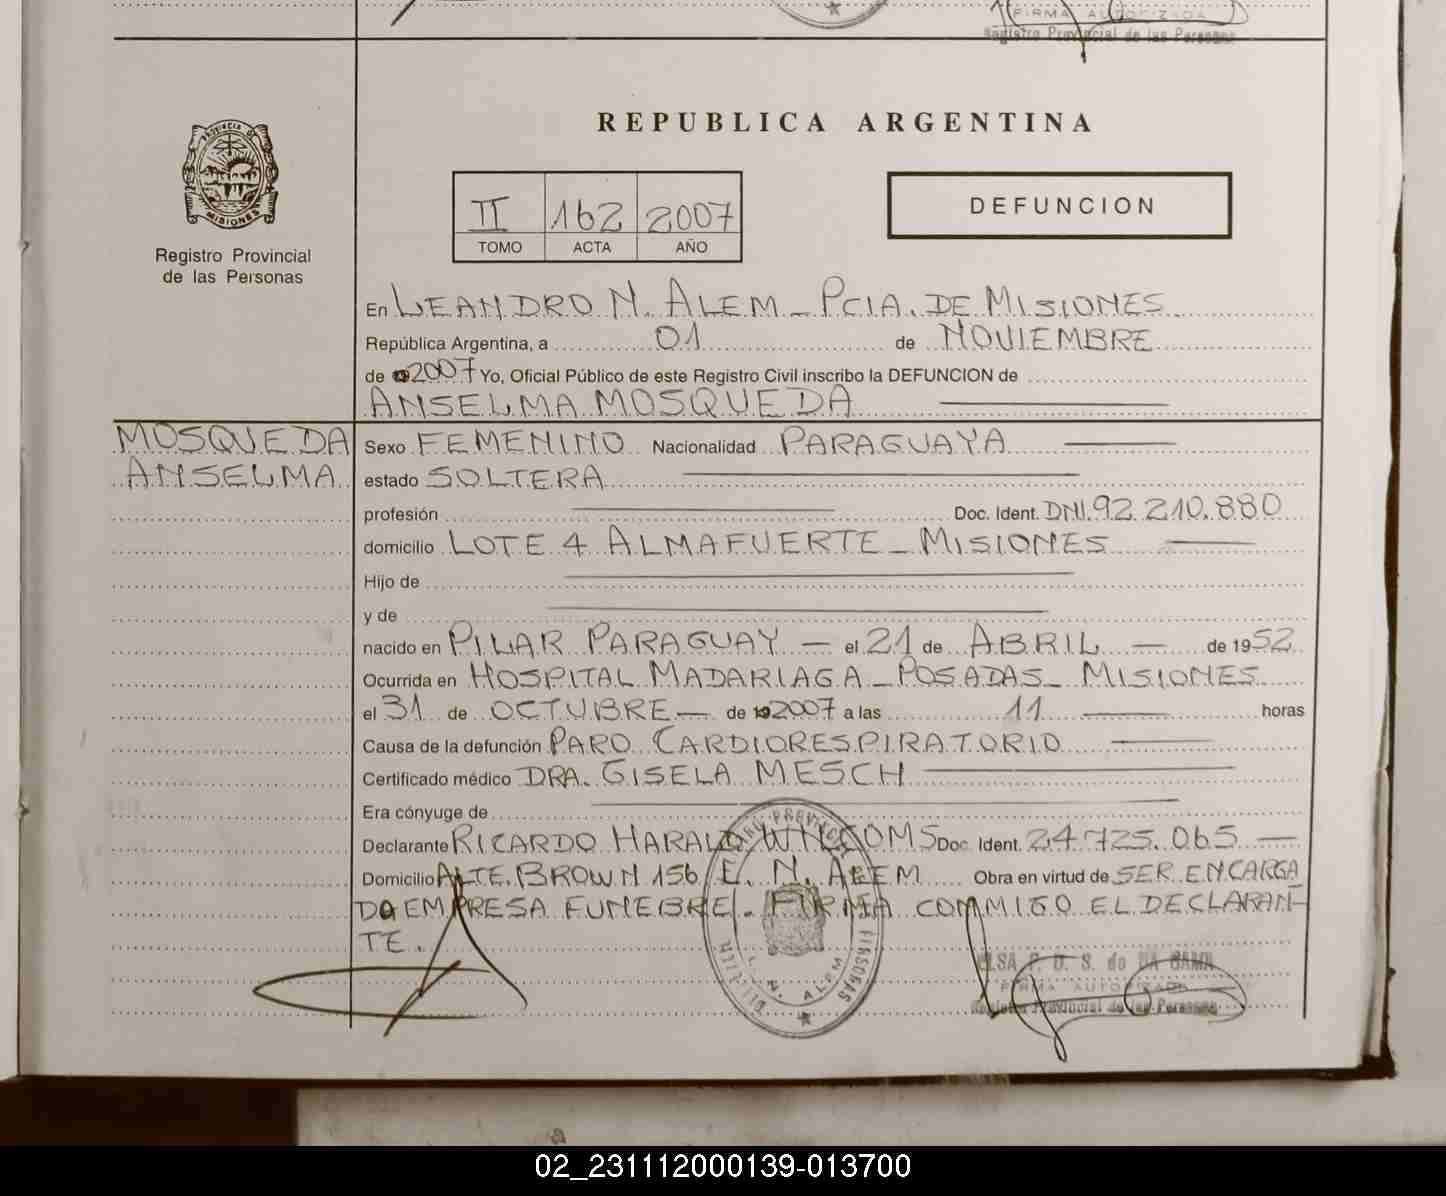 FIRMA AUTORIZADA
Registro Provincial de las Personas
REPUBLICA ARGENTINA
PROVINCIA DE MISIONES
Registro Provincial de las Personas
II 162 2007
TOMO ACTA AÑO
DEFUNCION
En LEANDRO N. ALEM - PCIA. DE MISIONES
República Argentina, a 01 de NOVIEMBRE
de 2007 Yo, Oficial Público de este Registro Civil inscribo la DEFUNCION de
ANSELMA MOSQUEDA
MOSQUEDA
ANSELMA
Sexo FEMENINO Nacionalidad PARAGUAYA
estado SOLTERA
profesión Doc. Ident. DNI. 92.210.880
domicilio LOTE 4 ALMAFUERTE - MISIONES
Hijo de
y de
nacido en PILAR PARAGUAY — el 21 de ABRIL — de 1952
Ocurrida en HOSPITAL MADARIAGA - POSADAS - MISIONES
el 31 de OCTUBRE — de 2007 a las 11 horas
Causa de la defunción PARO CARDIORESPIRATORIO
Certificado médico DRA. GISELA MESCH
Era cónyuge de
Declarante RICARDO HARALD Doc. Ident. 24.725.065 —
Domicilio ALTE. BROWN 156 L. N. ALEM Obra en virtud de SER ENCARGA
DO EMPRESA FUNEBRE. FIRMA CONMIGO EL DECLARAN-
TE.
L. N. ALEM
ELSA P. D. S. de
FIRMA AUTORIZADA
Registro Provincial de las Personas
02_231112000139-013700